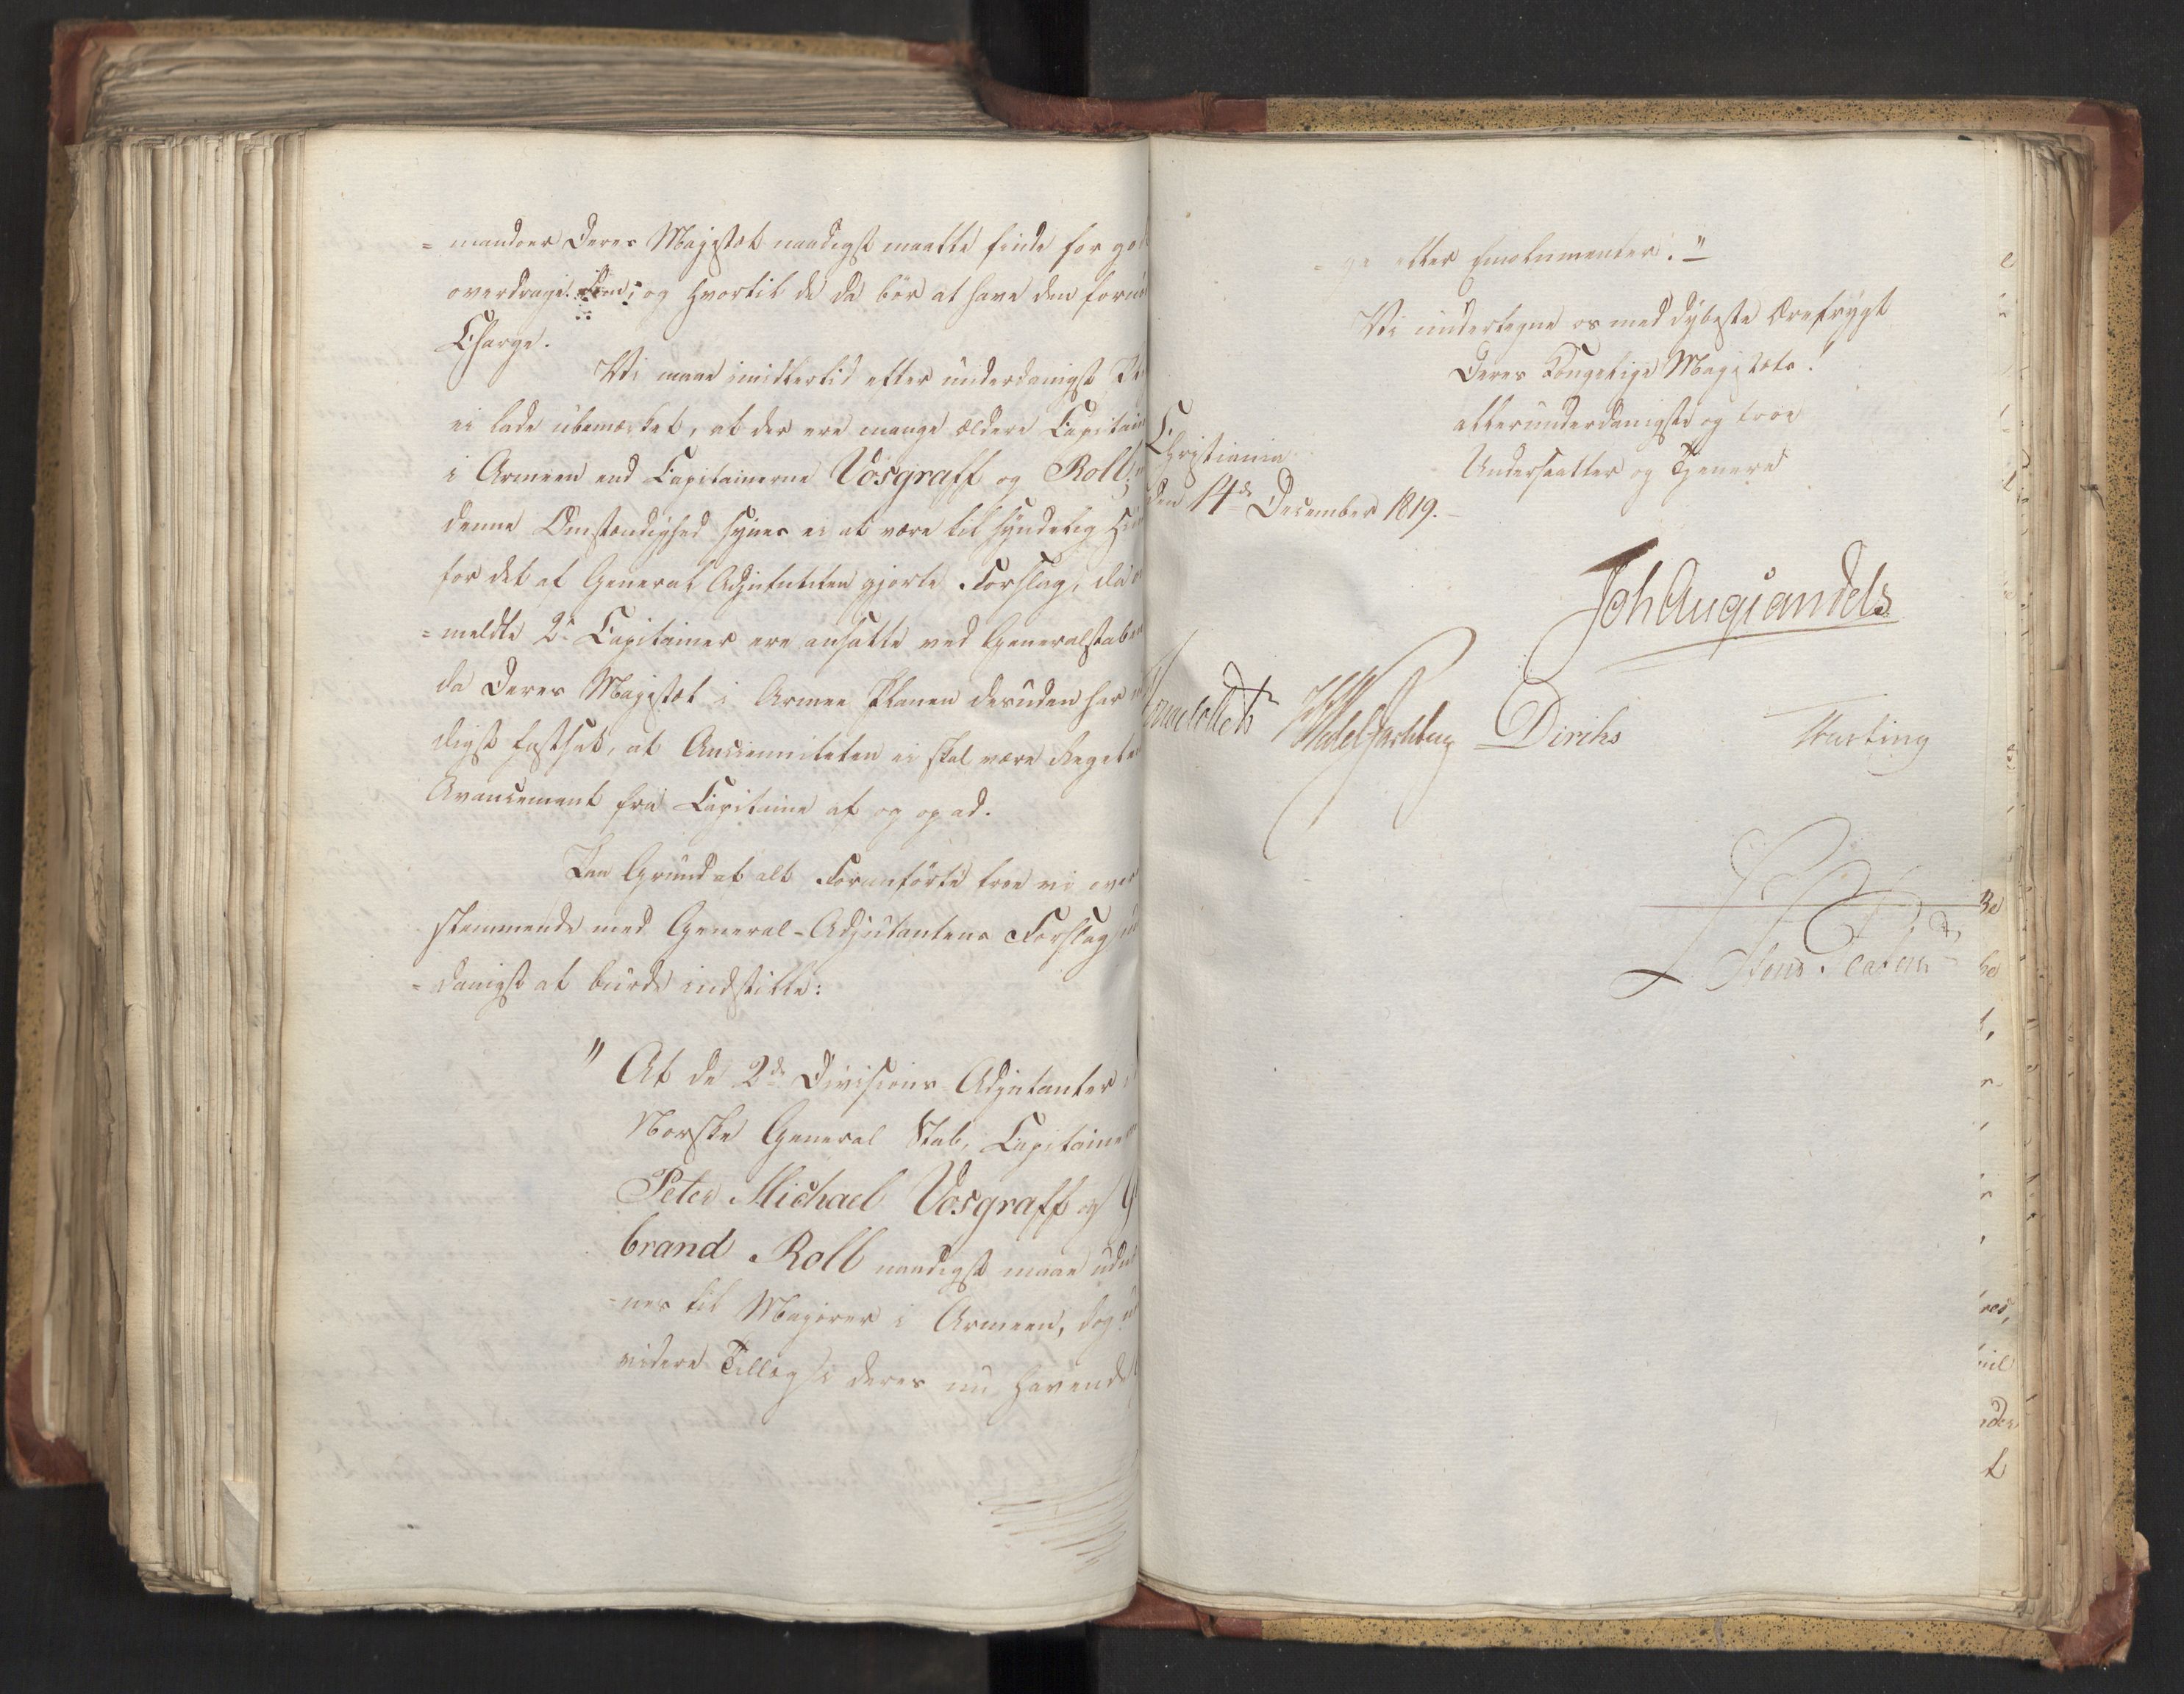 = mandoer Deres Majestæt naadigst maatte finde for godt
overdrage dem; og hvortil de da bör at have den fornö
Charge.
Vi maae imidlertid efter underdanigst
ei lade ubemærket, at der ere mange ældere Capitain
i Armeen end Capitainerne Vosgraff og Roll;
denne Omstændighed synes ei at være til hynderlig
for det af General Adjutanten gjorte Forslag, da
= meldte 2de Capitainer ere ansatte ved Generalstaben
da Deres Majestæt i Armee Planen desuden har
digst fastsat, at Ancienniteten ei skal være Regel
Avancement fra Capitaine af og opad.
Paa Grund af alt Foranförte troe vi over
stemmende med General-Adjutantens Forslag
= danigst at burde indstille:
" At de 2de Divisions Adjutanter
Norske General Stab, Capitaine
Peter Michael Vosgraff og
brand Roll naadigst maae udn
= nes til Majorer i Armeen, dog
videre Tillæg i deres nu havende
= ge eller Emolumenter."
Vi undertegne os med dybeste Ærefrygt
Deres Kongelige Majestæts!
allerunderdanigste og troe
Undersaatter og Tjenere
Christiania
den 14de December 1819.
Joh Aug Sandels
Jonas Collett Diriks Motzfeldt